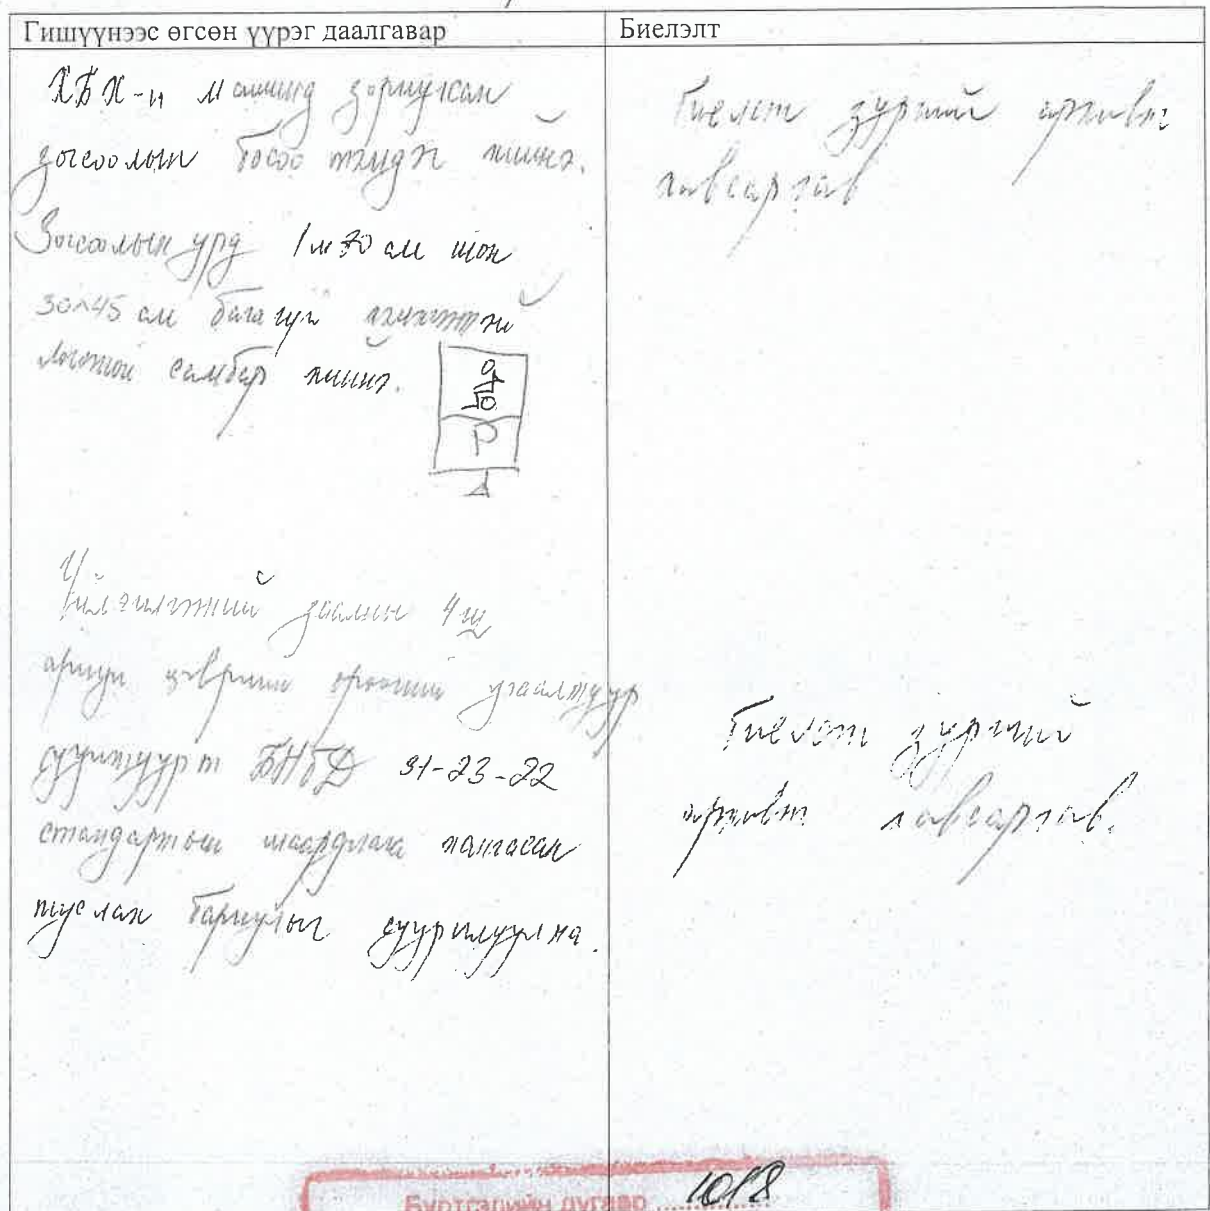 Гишүүнээс өгсөн үүрэг даалгавар
Биелэлт
ХБХ-н машинд зориулсан
зогсоолын босоо тэмдэг хийнэ.
Зогсоолын урд 1м 70 см шон
30*45 см багагүй хэмжээтэй
логотой самбар хийнэ.
P
Үйлчилгээний заалны 4ш
ариун цэврийн өрөөний угаалтуур
суултуурт БНБД 31-23-22
стандартын шаардлага хангасан
туслах бариулыг суурилуулна.
Биелэлт зургийг архивт
хавсаргав
Биелэлт зургийг
архивт хавсаргав.
Бүртгэлийн дугаар 1018